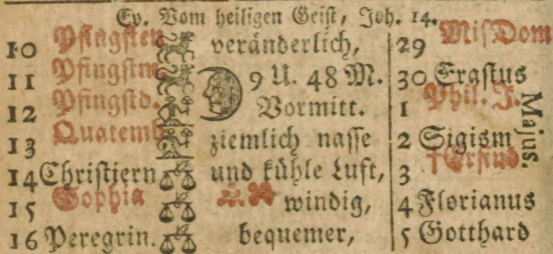 Ev. Vom heiligen Geist, Joh. 14.
10 Pfingsten veränderlich, 29 MisDom
11 Pfingstm 9 U. 48 M. 30 Erastus
12 Pfingstd. Vormitt. 1 Phil. J.
13 Quatemb ziemlich nasse 2 Sigism
14 Christjern und kühle Luft, 3 †Erfind
15 Sophia windig, 4 Florianus
16 Peregrin. bequemer, 5 Gotthard
Majus.